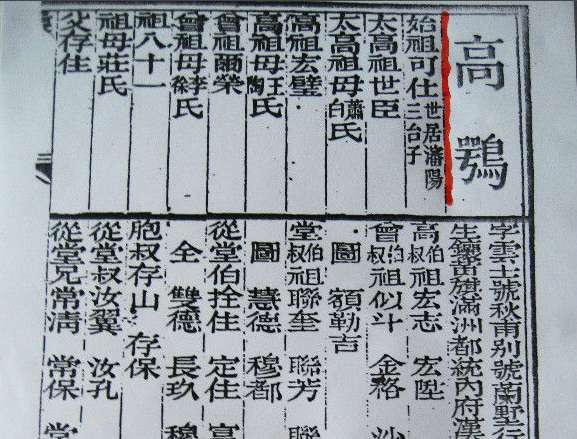 高鶚
始祖可仕世居瀋陽三台子
太高祖世臣
太高祖母蕭白氏
高祖宏璧
高祖母王陶氏
曾祖爾榮
曾祖母李徐氏
祖八十一
祖母莊氏
父存住
字雲士號秋甫別號蘭墅
生鑲黃旗滿洲都統內府漢
高伯叔祖宏志 宏陞
曾伯叔祖似斗 金 沙
圖 額勒吉
堂伯叔祖聯奎 聯芳 聯
圖 慧德 穆都
全 雙德 長玖 穆
從堂伯拴住 定住 富
胞叔存山 存保
從堂叔汝翼 汝孔
從堂兄常清 常保 常